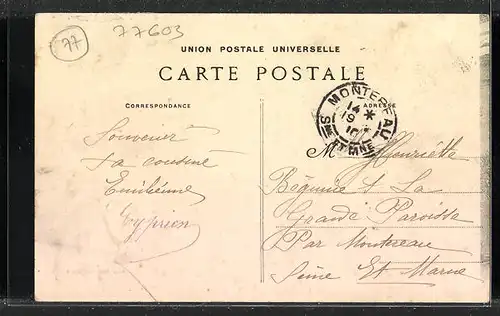 77
77603
UNION POSTALE UNIVERSELLE
CARTE POSTALE
CORRESPONDANCE
ADRESSE
MONTEREAU
14 *
19
10
Sne ET MNE
Souvenir
ta cousine
Emilienne
Cyprien
M Henriette
La
Grande Paroisse
Par Montereau
Seine Et Marne